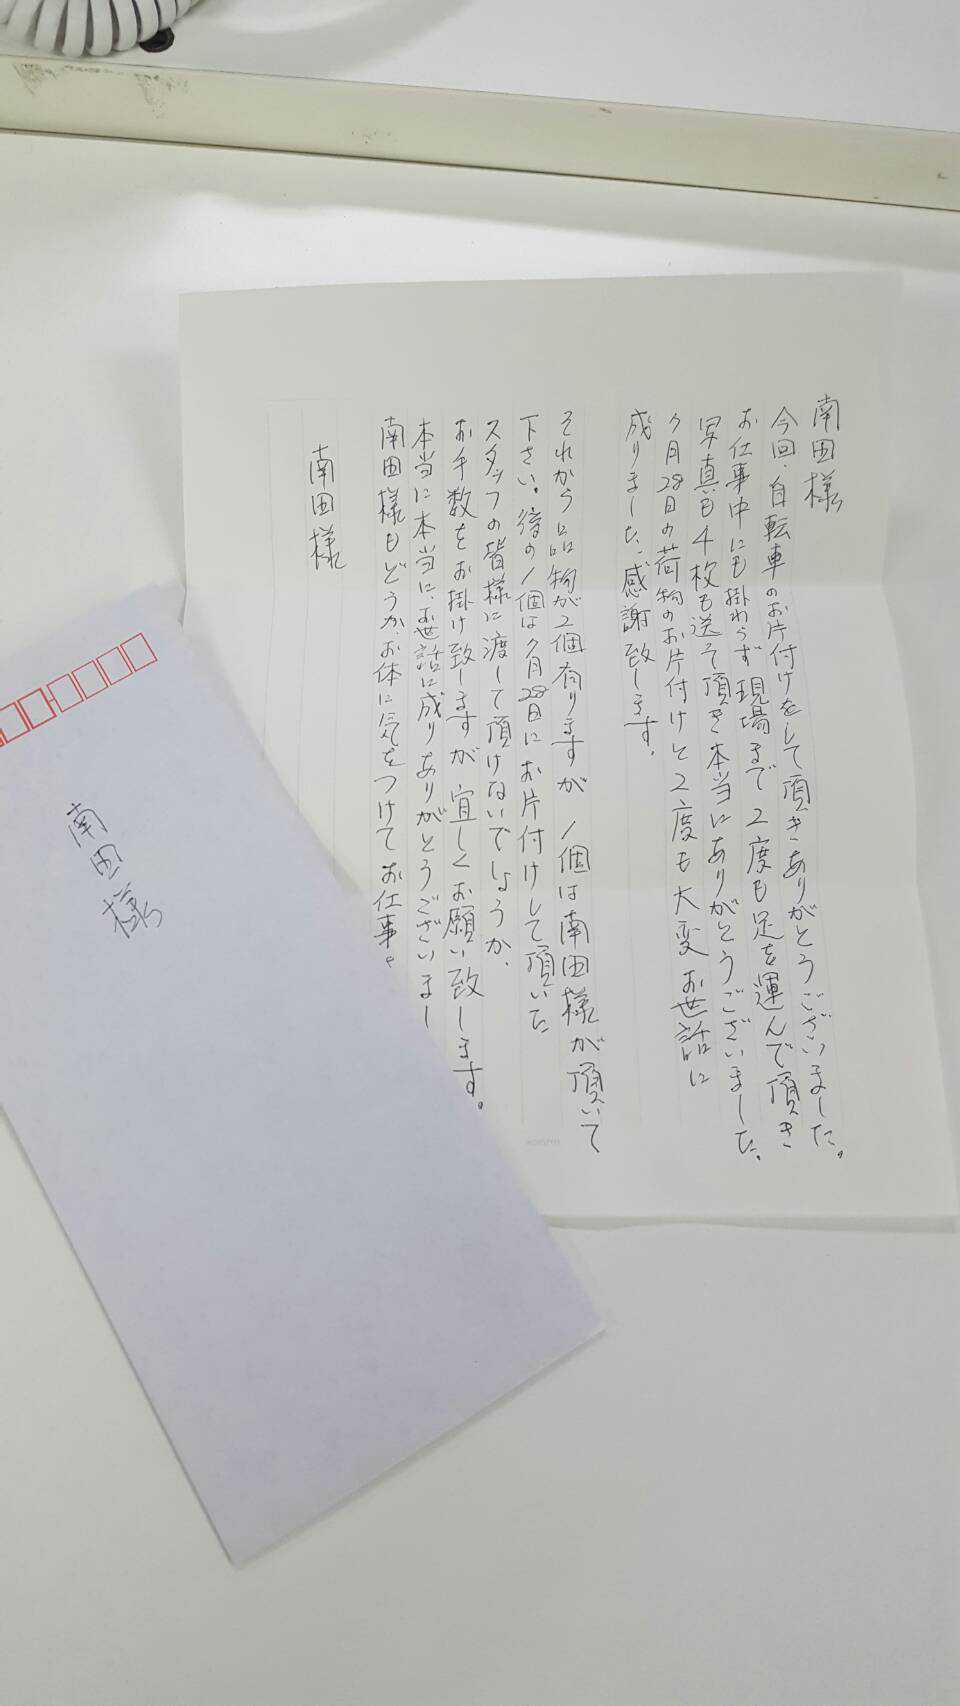 南田様
今回、自転車のお片付けをして頂きありがとうございました。
お仕事中にも掛わらず現場まで2度も足を運んで頂き
写真も4枚も送って頂き本当にありがとうございました。
7月28日の荷物のお片付けと2度も大変お世話に
成りました、感謝致します。
それから品物が2個有りますが 1個は南田様が頂いて
下さい。後の1個は7月28日にお片付けして頂いた
スタッフの皆様に渡して頂けないでしょうか、
お手数をお掛け致しますが宜しくお願い致します。
本当に本当に、お世話に成りありがとうございまし
南田様もどうか、お体に気をつけてお仕事
南田様
南田様